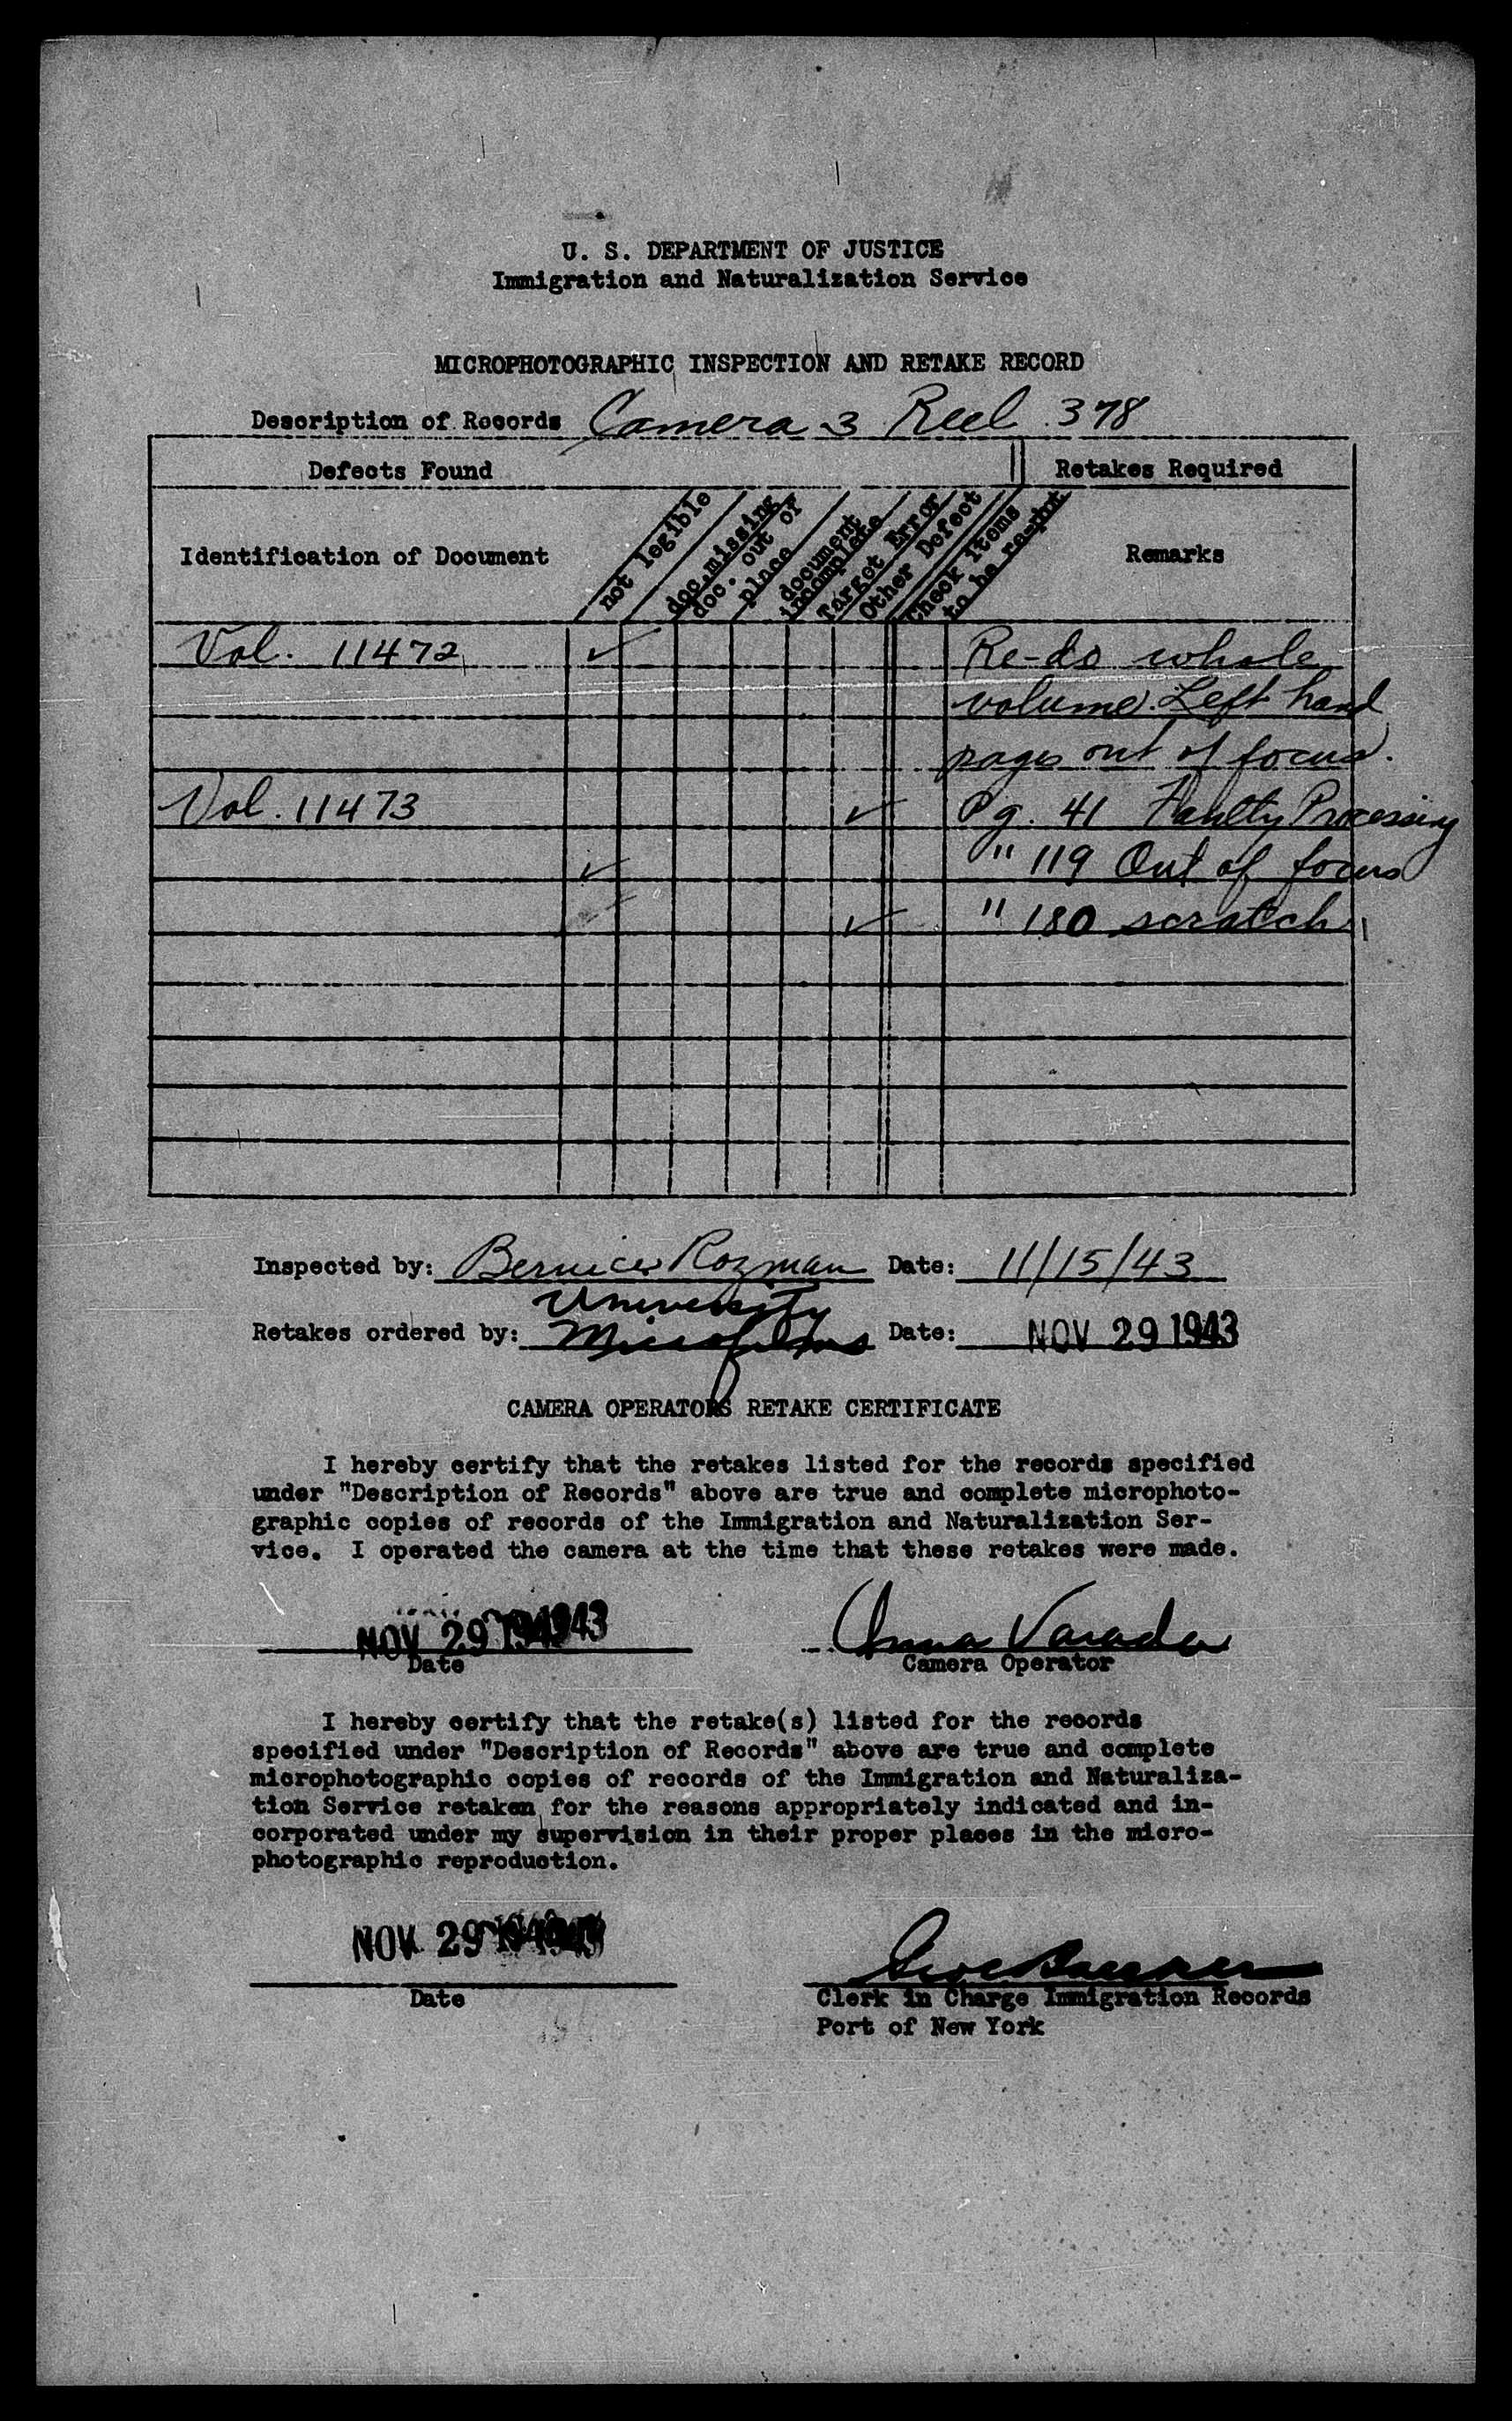 U. S. DEPARTMENT OF JUSTICE
Immigration and Naturalization Service
MICROPHOTOGRAPHIC INSPECTION AND RETAKE RECORD
Description of Records Camera 3 Reel 378
Defects Found Retakes Required
Identification of Document not legible doc. missing doc. out of place document incomplete Target Error Other Defect Check items to be Remarks
Vol. 11472 ✓ Re-do whole
volume. Left hand
pages out of focus.
Vol. 11473 ✓ Pg. 41 Faulty Processing
✓ " 119 Out of focus
✓ " 180 scratch
Inspected by: Bernice Rozman Date: 11/15/43
University
Retakes ordered by: Microfilms Date: NOV 29 1943
CAMERA OPERATORS RETAKE CERTIFICATE
I hereby certify that the retakes listed for the records specified
under "Description of Records" above are true and complete microphoto-
graphic copies of records of the Immigration and Naturalization Ser-
vice. I operated the camera at the time that these retakes were made.
NOV 29 Anna
Date Camera Operator
I hereby certify that the retake(s) listed for the records
specified under "Description of Records" above are true and complete
microphotographic copies of records of the Immigration and Naturaliza-
tion Service retaken for the reasons appropriately indicated and in-
corporated under my supervision in their proper places in the micro-
photographic reproduction.
NOV 29
Date Clerk in Charge Immigration Records
Port of New York